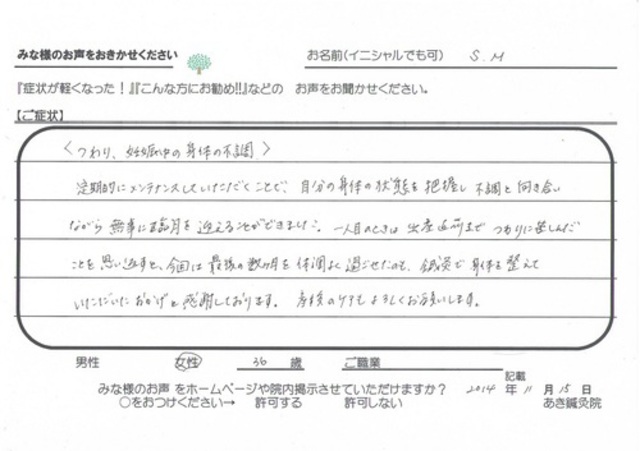 みな様のお声をおきかせください
お名前(イニシャルでも可) S.M
『症状が軽くなった！』『こんな方にお勧め!!』などの お声をお聞かせください。
【ご症状】
＜つわり、妊娠中の身体の不調＞
定期的にメンテナンスしていただくことで、自分の身体の状態を把握し不調と向き合い
ながら無事に臨月を迎えることができました。一人目のときは出産直前までつわりに苦しんだ
ことを思い返すと、今回は最後の数か月を体調よく過ごせたのも、鍼灸で身体を整えて
いただいたおかげと感謝しております。産後のケアもよろしくお願いします。
男性 女性 36 歳 ご職業
みな様のお声をホームページや院内掲示させていただけますか？
記載
2014 年 11 月 15 日
○をおつけください→ 許可する 許可しない あき鍼灸院